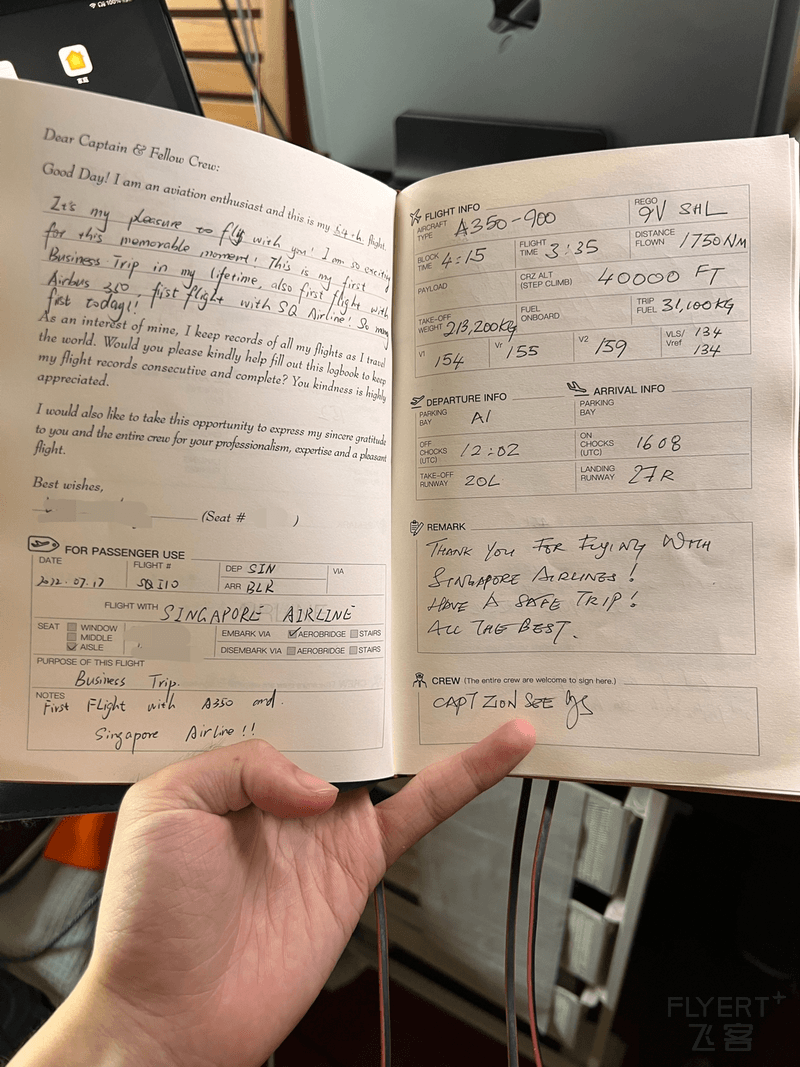 100%
家庭
Dear Captain & Fellow Crew:
Good Day! I am an aviation enthusiast and this is my 64-th flight.
It's my pleasure to fly with you! I am so exciting
for this memorable moment! This is my first
Business Trip in my lifetime, also first flight with
Airbus 350 fist flight with SQ Airline! So many
fist today!!
As an interest of mine, I keep records of all my flights as I travel
the world. Would you please kindly help fill out this logbook to keep
my flight records consecutive and complete? You kindness is highly
appreciated.
I would also like to take this opportunity to express my sincere gratitude
to you and the entire crew for your professionalism, expertise and a pleasant
flight.
Best wishes,
(Seat # )
FOR PASSENGER USE
DATE 2022.07.17
FLIGHT # SQ 510
DEP SIN
ARR BLR
VIA
FLIGHT WITH SINGAPORE AIRLINE
SEAT
WINDOW
MIDDLE
AISLE
EMBARK VIA AEROBRIDGE STAIRS
DISEMBARK VIA AEROBRIDGE STAIRS
PURPOSE OF THIS FLIGHT
Business Trip.
NOTES
First Flight with A350 and.
Singapore Airline!!
FLIGHT INFO
AIRCRAFT TYPE A350-900
REGO 9V SHL
BLOCK TIME 4:15
FLIGHT TIME 3:35
DISTANCE FLOWN 1750NM
PAYLOAD
CRZ ALT (STEP CLIMB) 40000 FT
TAKE-OFF WEIGHT 213,200KG
FUEL ONBOARD
TRIP FUEL 31,100KG
V1 154
Vr 155
V2 159
VLS/ Vref 134 134
DEPARTURE INFO
PARKING BAY A1
OFF CHOCKS (UTC) 12:02
TAKE-OFF RUNWAY 20L
ARRIVAL INFO
PARKING BAY
ON CHOCKS (UTC) 1608
LANDING RUNWAY 27R
REMARK
THANK YOU FOR FLYING WITH
SINGAPORE AIRLINES!
HAVE A SAFE TRIP!
ALL THE BEST.
CREW (The entire crew are welcome to sign here.)
CAPT ZION SEE
FLYERT+
飞客